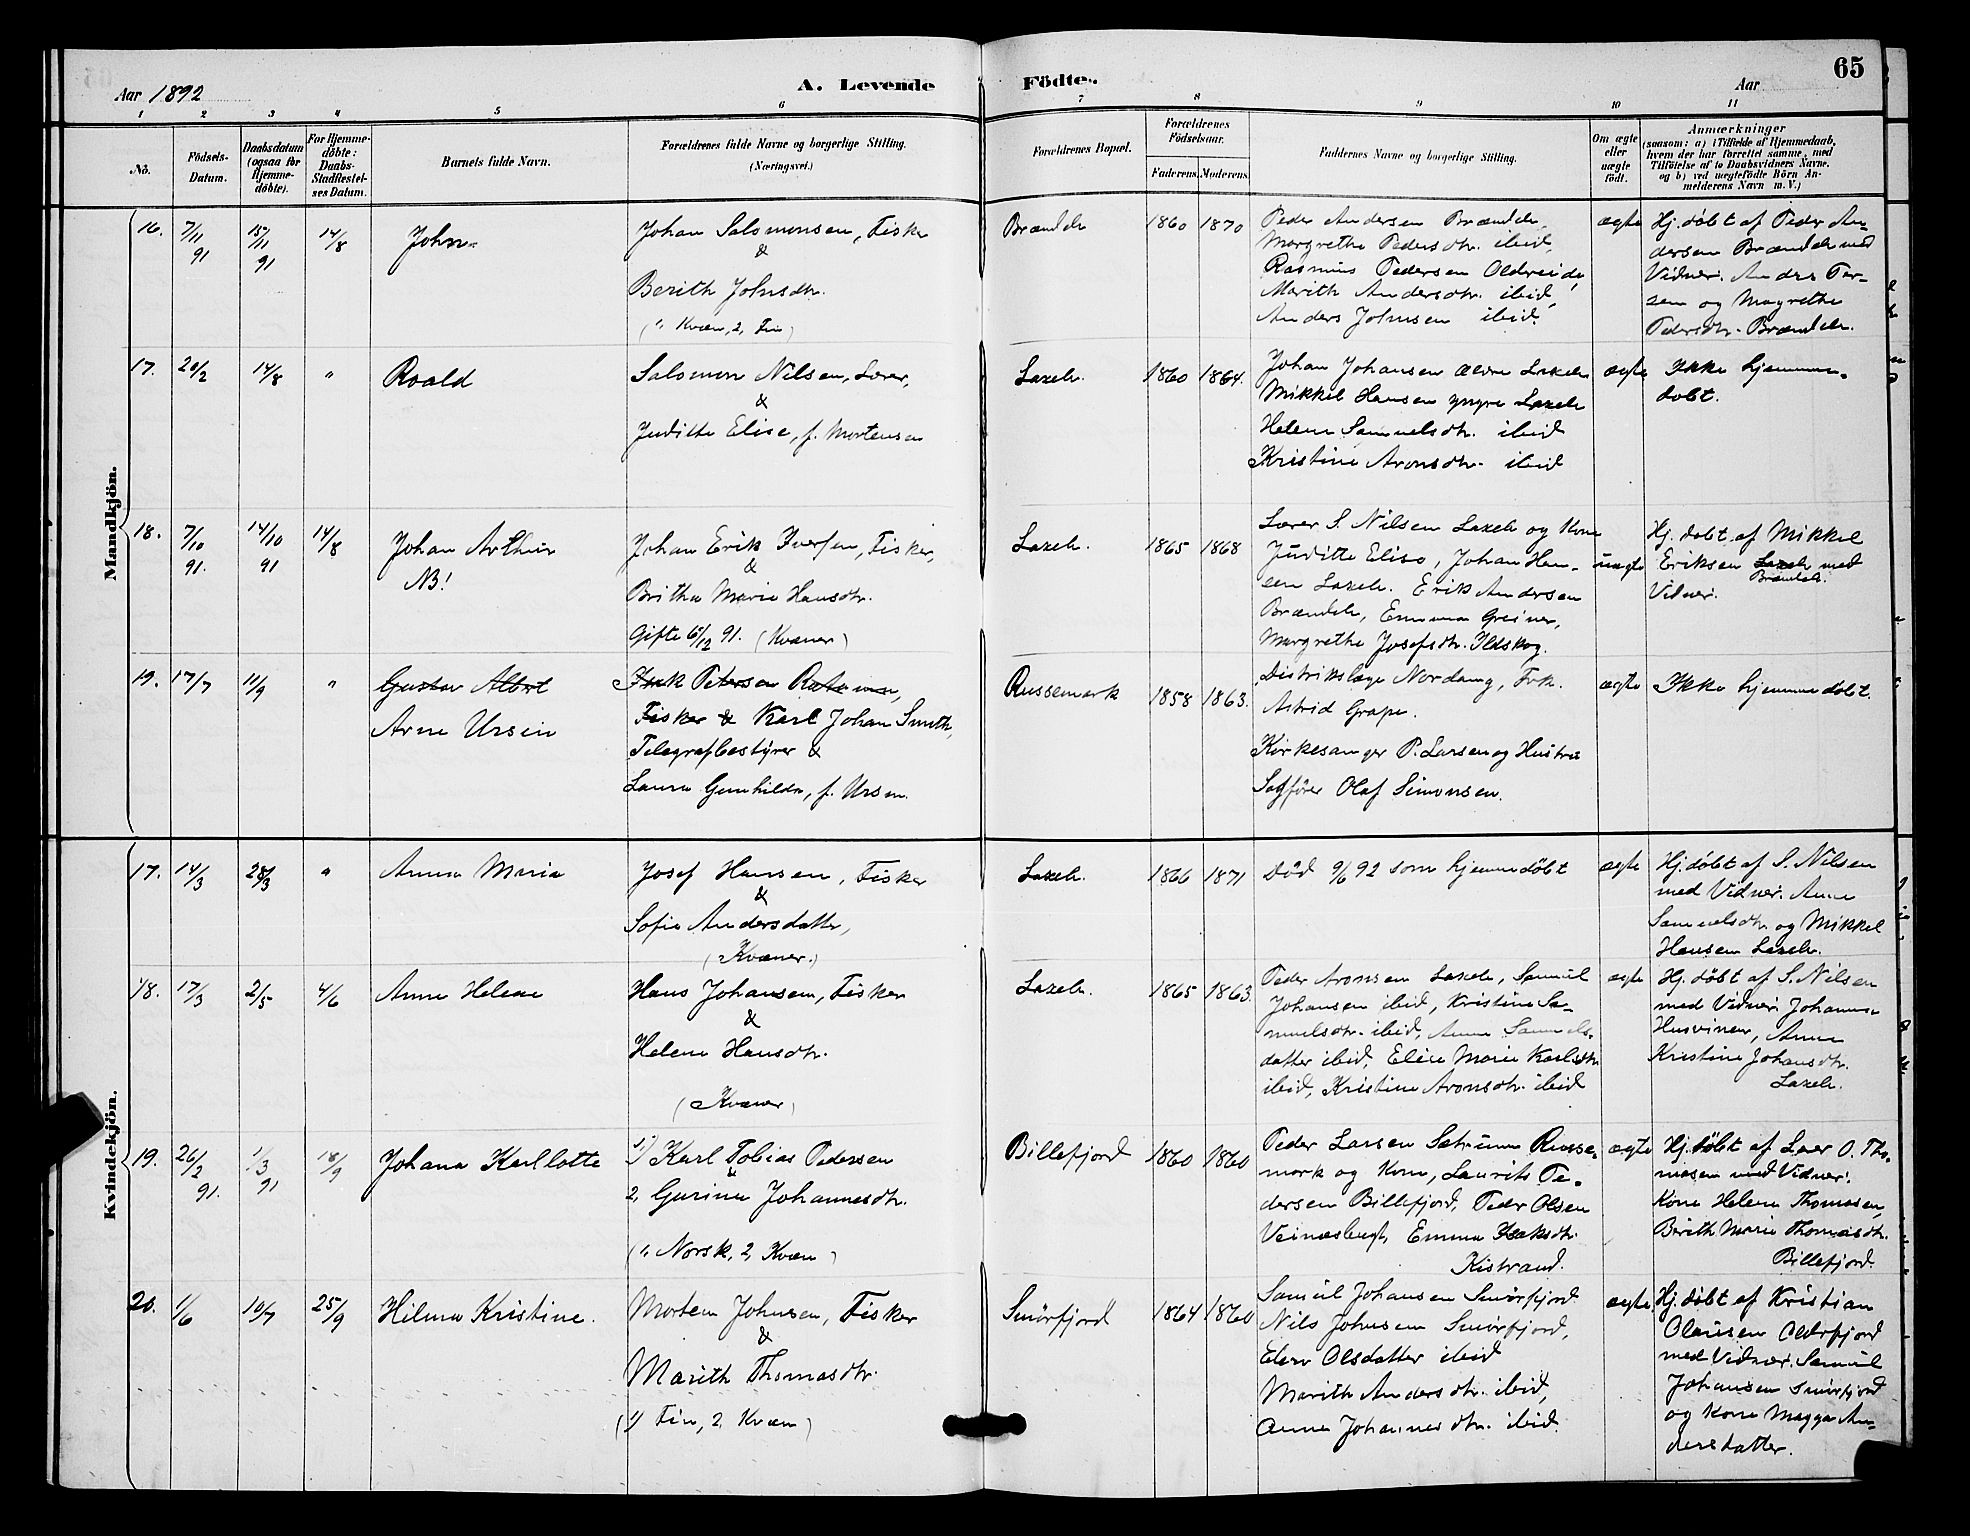 65
Aar 1892
A. Levende
Födte.
Aar
1 2 3 4 5 6 7 8 9 10 11
No.
Födsels-
Datum.
Daabsdatum
(ogsaa for
Hjemme-
döbte).
For Hjemme-
döbte:
Daabs-
Stadfæstel-
ses Datum.
Barnets fulde Navn.
Forældrenes fulde Navne og borgerlige Stilling.
(Næringsvei.)
Forældrenes Bopæl.
Forældrenes
Födselsaar.
Faderens. Moderens.
Faddernes Navne og borgerlige Stilling.
Om ægte
eller
uægte
födt.
Anmærkninger
(saasom: a) i Tilfælde af Hjemmedaab,
hvem der har forrettet samme, med
Tilföielse af to Daabsvidners Navne,
og b) ved uægtefödte Börn An-
melderens Navn m. V.)
Mandkjön.
16. 7/11 91
15/11 91
14/8
John
Johan Salomonsen, Fisker
&
Berith Johnsdtr.
(1, Kvæn, 2, Fin)
Brændelv
1860 1870
Peder Andersen Brændelv,
Margrethe Pedersdtr. ibid,
Rasmus Pedersen Oldereide,
Marith Andersdtr. ibid,
Anders Johnsen ibid.
ægte
Hj. döbt af Peder An-
dersen Brændelv med
Vidner: Anders Per-
sen og Magrethe
Pedersdtr. Brændelv.
17. 20/2
14/8
"
Roald
Salomon Nilsen, Lærer,
&
Juditte Elise, f. Mortensen
Laxelv.
1860 1864.
Johan Johansen ældre Laxelv
Mikkel Hansen yngre Laxelv
Helene Samuelsdtr. ibid
Kristine Aronsdtr. ibid
ægte
Ikke hjemme-
döbt.
18. 7/10 91.
14/10 91
14/8
Johan Arthur
NB!
Johan Erik Iversen, Fisker,
&
Britha Marie Hansdtr.
Gifte 6/12 91. (Kvæner)
Laxelv.
1865 1868
Lærer S. Nilsen Laxelv og Kone
Juditte Elise, Johan Han-
sen Laxelv. Erik Andersen
Brændelv, Emma Greiner,
Margrethe Josefsdtr. Ildskog.
uægte
Hj. döbt af Mikkel
Eriksen Laxelv med
Brændelv.
Vidner.
19. 17/7
11/9
"
Gustav Albert
Arne Ursin
Isak Petersen
Fisker & Karl Johan Smith,
Telegrafbestyrer &
Laura Gunhilda, f. Ursin.
Russemark
1858 1863.
Distriktslæge Nordang, Frk.
Astrid Grape.
Kirkesanger P. Larsen og Hustru
Sagförer Olaf Simonsen.
ægte
Ikke hjemmedöbt.
Kvindekjön.
17. 14/3
28/3
"
Anna Maria
Josef Hansen, Fisker
&
Sofie Andersdatter,
(Kvæner.)
Laxelv.
1866 1871
Död 9/6 92 som hjemmedöbt
ægte
Hj. döbt af S. Nilsen
med Vidner: Anne
Samuelsdtr. og Mikkel
Hansen Laxelv.
18. 17/3
2/5
4/6
Anne Helene
Hans Johansen, Fisker
&
Helene Hansdtr.
(Kvæner)
Laxelv.
1865 1863.
Peder Aronsen Laxelv, Samuel
Johansen ibid, Kristine Sa-
muelsdtr. ibid, Anne Samuels-
datter ibid, Elise Marie Karlsdtr.
ibid, Kristine Aronsdtr. ibid
ægte
Hj. döbt af S. Nilsen
med Vidner: Johanne
Husvinen, Anne
Kristine Johansdtr.
Laxelv.
19. 26/2 91.
1/3 91
18/9
Johana Karllotte
1) Karl Tobias Pedersen
&
2, Gurine Johannesdtr.
(1, Norsk, 2, Kvæn)
Billefjord
1860 1860
Peder Larsen Sætrum Russe-
mark og Kone, Laurits Pe-
dersen Billefjord, Peder Olsen
Veinæsbugt, Emma Isaksdtr.
Kistrand.
ægte
Hj. döbt af Lærer O. Tho-
masen med Vidner:
Kone Helene Thomasen,
Berith Marie Thomasdtr.
Billefjord.
20. 1/6
10/7
25/9
Hilma Kristine.
Morten Johnsen, Fisker
&
Marith Thomasdtr.
(1) Fin, 2, Kvæn)
Smörfjord
1864 1860
Samuel Johansen Smörfjord
Nils Johnsen Smörfjord,
Elen Olsdatter ibid
Marith Andersdtr. ibid,
Anne Johannesdtr. ibid.
ægte.
Hj. döbt af Kristian
Olausen Olderfjord
med Vidner: Samuel
Johansen Smörfjord
og Kone Magga An-
dersdatter.